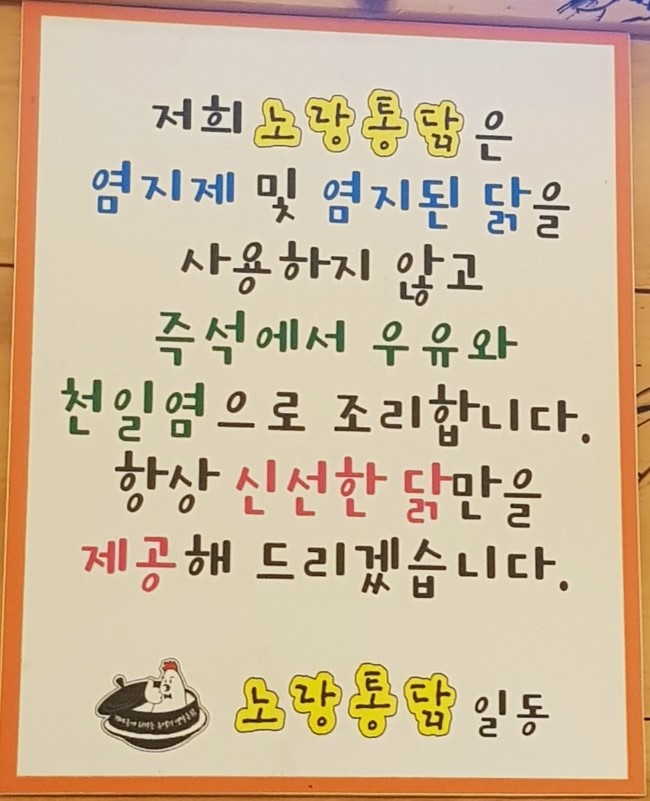 저희 노랑통닭은
염지제 및 염지된 닭을
사용하지 않고
즉석에서 우유와
천일염으로 조리합니다.
항상 신선한 닭만을
제공해 드리겠습니다.
노랑통닭 일동